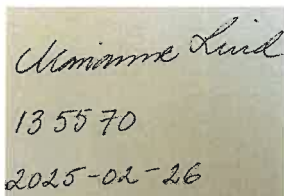 Marianne Lind
13 55 70
2025-02-26